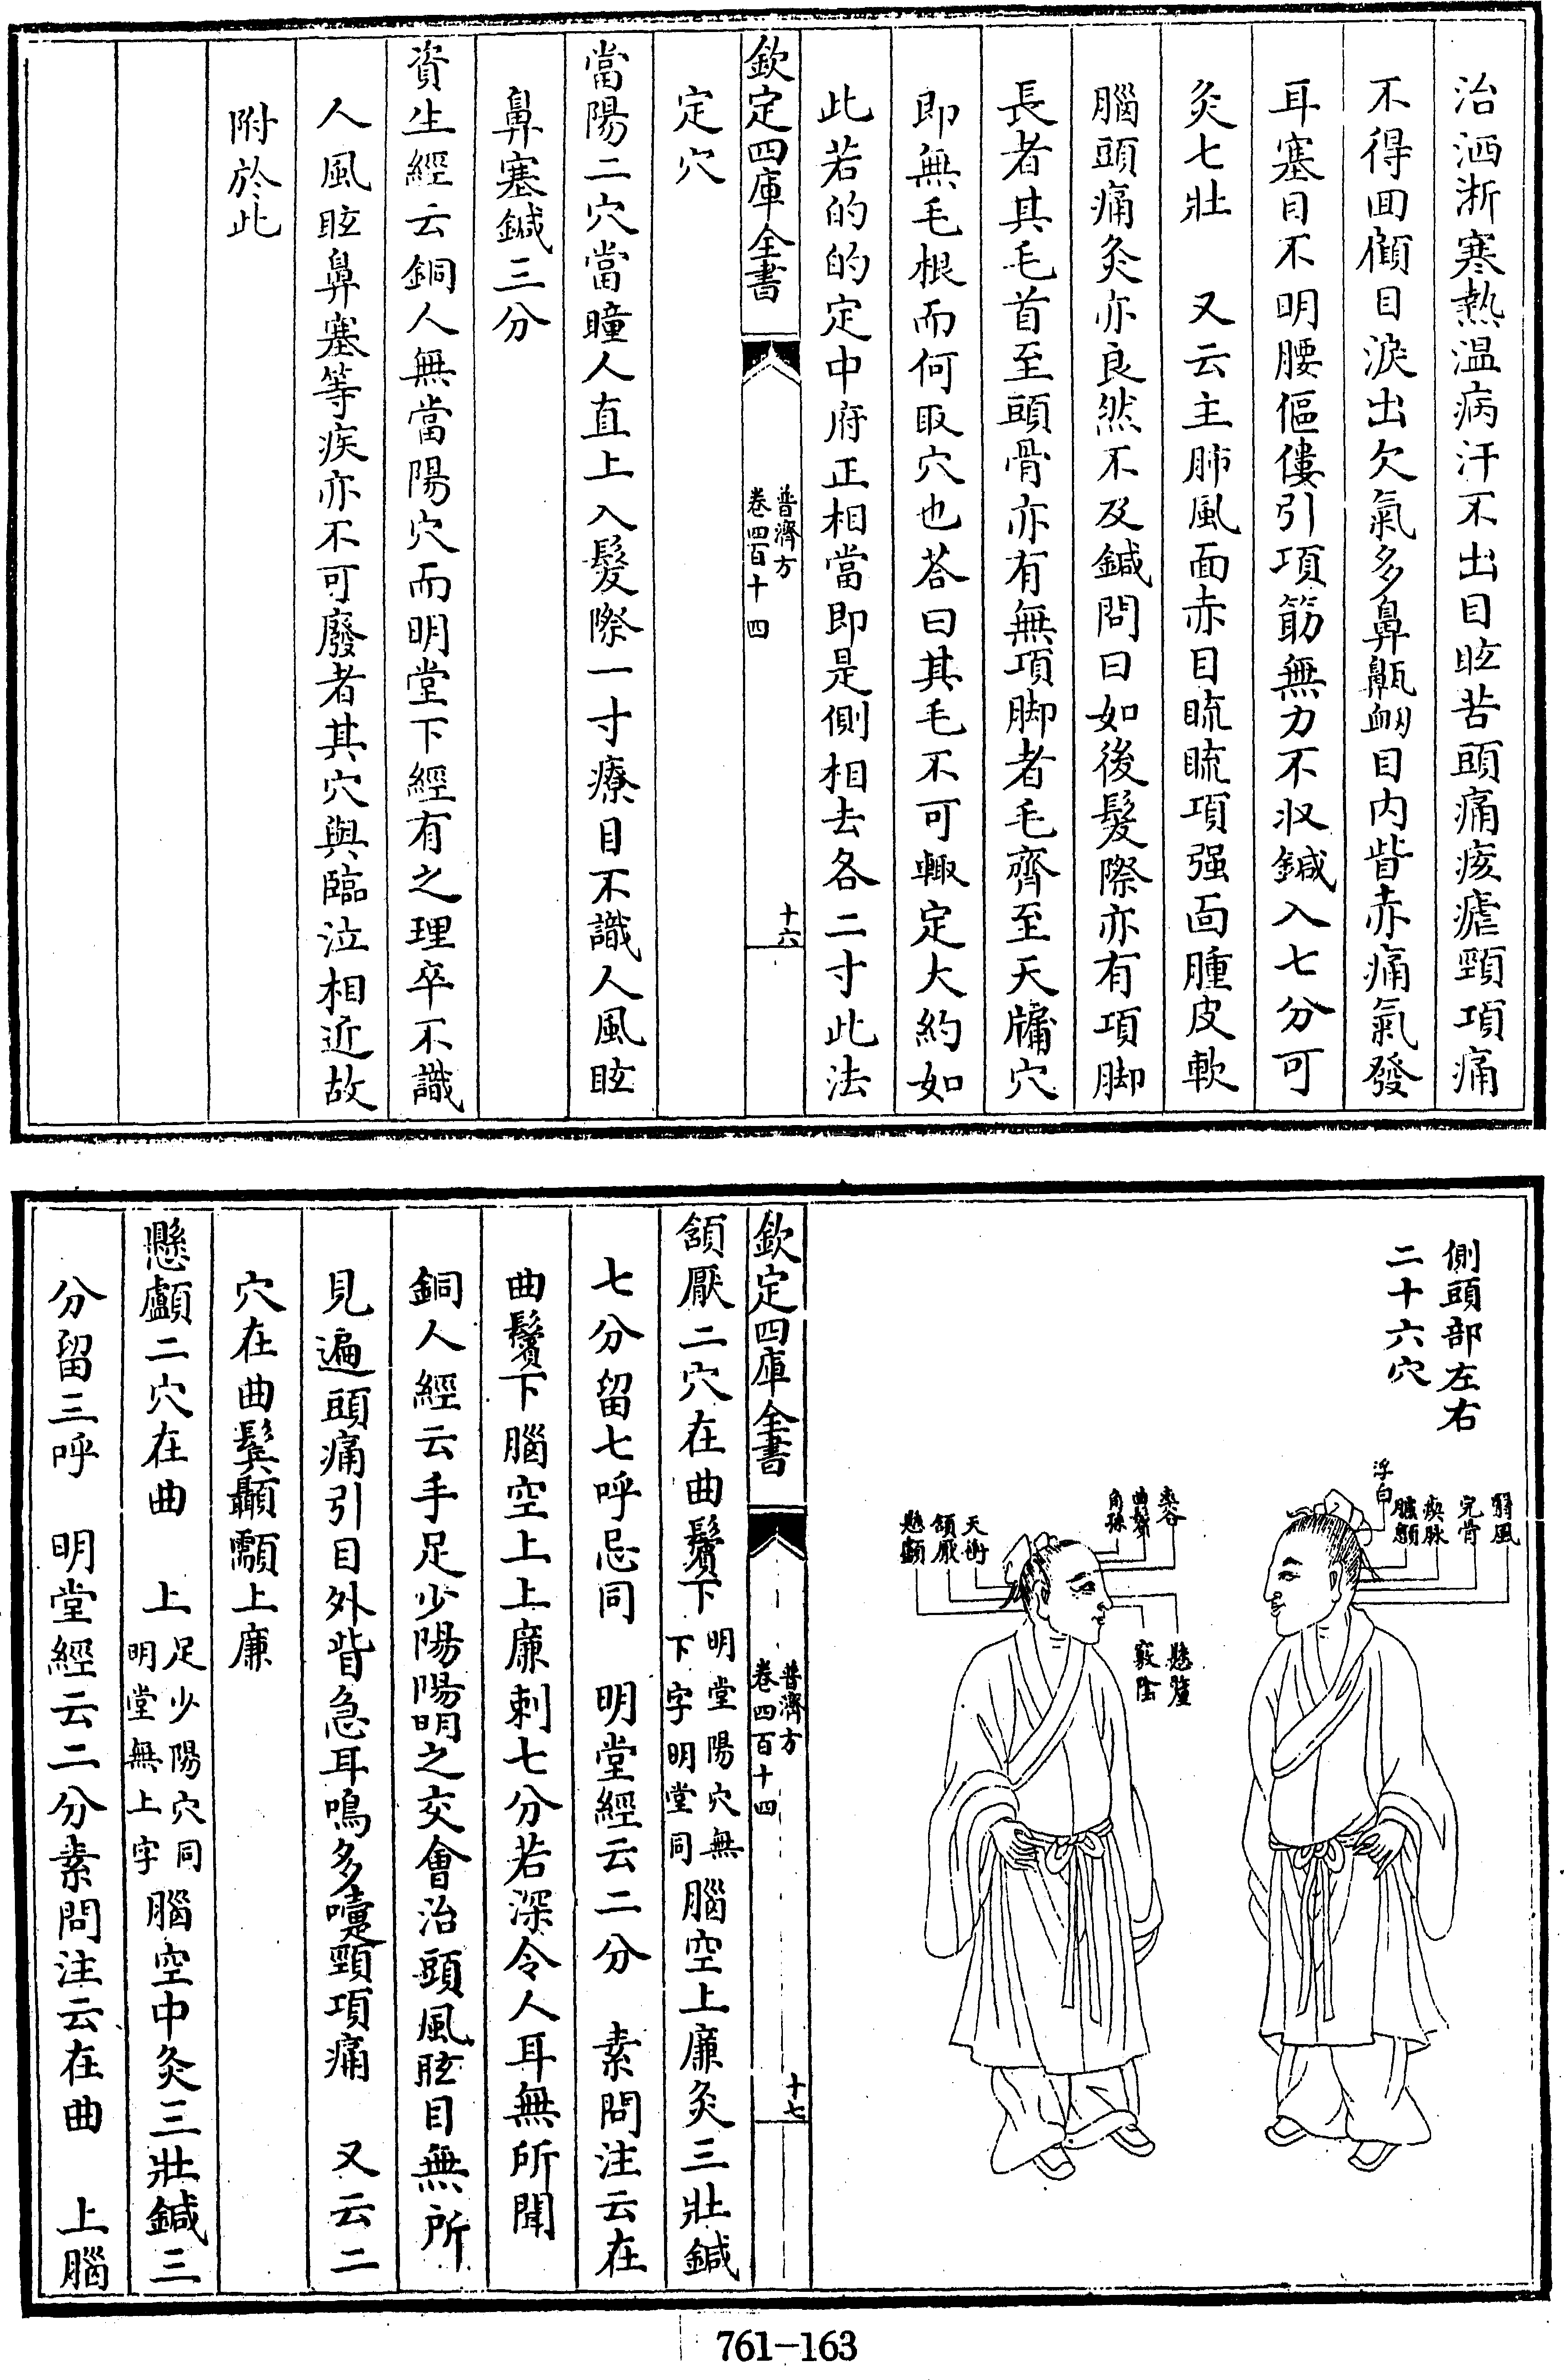 治洒淅寒熱温病汗不出目眩苦頭痛痎瘧頸項痛
不得回顧目淚出欠氣多鼻鼽衂目内眥赤痛氣發
耳塞目不明腰傴僂引項筋無力不収鍼入七分可
灸七壯　又云主肺風面赤目䀮䀮項强面腫皮軟
腦頭痛灸亦良然不及鍼問曰如後髮際亦有項脚
長者其毛首至頭骨亦有無項脚者毛齊至天牖穴
即無毛根而何取穴也荅曰其毛不可輙定大約如
此若的的定中府正相當即是側相去各二寸此法
欽定四庫全書
普濟方
卷四百十四
十六
定穴
當陽二穴當瞳人直上入髮際一寸療目不識人風眩
鼻塞鍼三分
資生經云銅人無當陽穴而明堂下經有之理卒不識
人風眩鼻塞等疾亦不可廢者其穴與臨泣相近故
附於此
側頭部左右
二十六穴
翳風
完骨
瘈脉
顱顖
浮白
率谷
曲鬢
角孫
天衝
頷厭
懸顱
懸釐
竅陰
欽定四庫全書
普濟方
卷四百十四
十七
頷厭二穴在曲鬢下明堂陽穴無下字明堂同腦空上廉灸三壯鍼
七分留七呼忌同　明堂經云二分　素問注云在
曲鬢下腦空上上廉刺七分若深令人耳無所聞
銅人經云手足少陽陽明之交會治頭風眩目無所
見遍頭痛引目外眥急耳鳴多嚏頸項痛　又云二
穴在曲鬢顳顬上廉
懸顱二穴在曲　上足少陽穴同明堂無上字腦空中灸三壯鍼三
分留三呼　明堂經云二分素問注云在曲　上腦
761-163